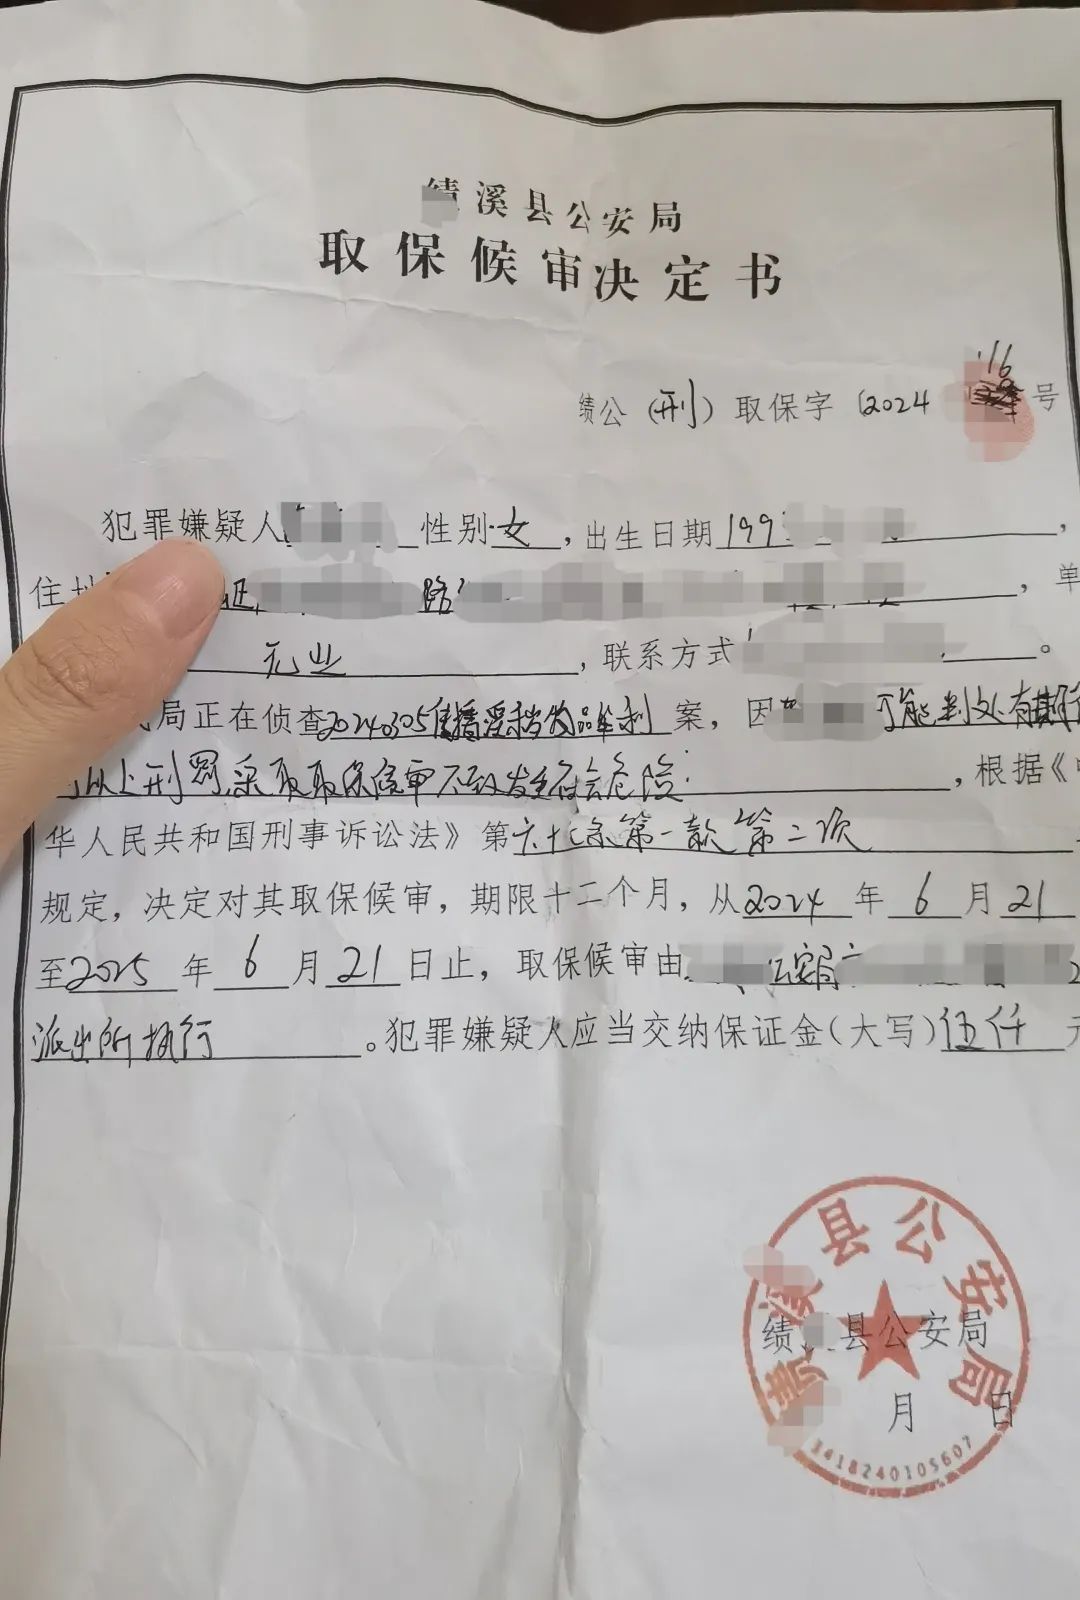 绩溪县公安局
取保候审决定书
绩公（刑）取保字〔2024 16号
犯罪嫌疑人 性别女，出生日期199 ，
住址 路 ，单
无业 ，联系方式 。
局正在侦查20240305传播淫秽物品牟利案，因 可能判处有期
以上刑罚，采取取保候审不致发生社会危险 ，根据《
华人民共和国刑事诉讼法》第六十七条第一款第二项
规定，决定对其取保候审，期限十二个月，从2024年6月21
至2025年6月21日止，取保候审由 公安局
派出所执行。犯罪嫌疑人应当交纳保证金（大写）伍仟元
县公安局
绩 县公安局
月 日
3418240105607